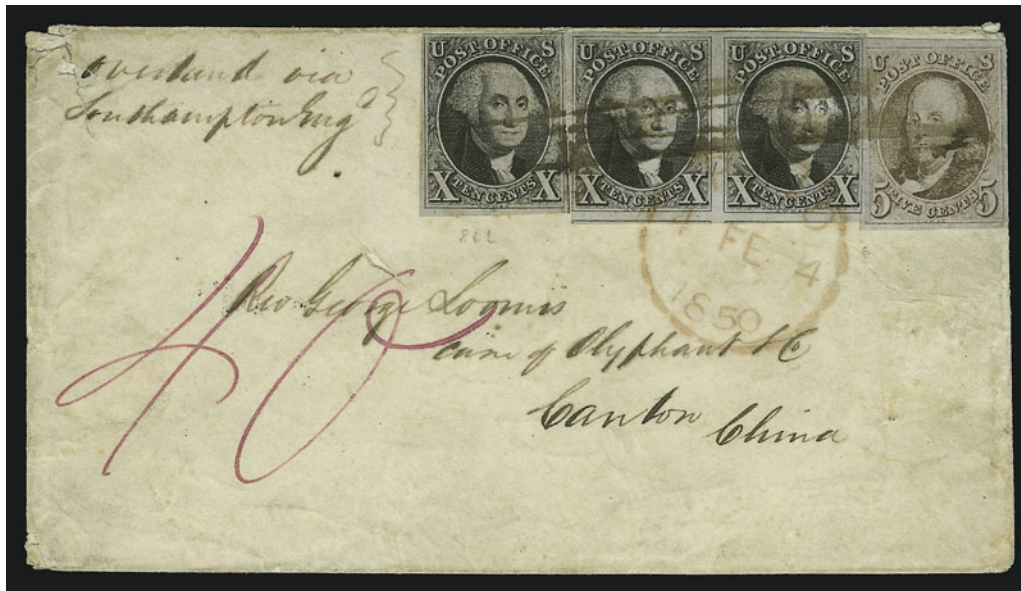 overland via
Southampton Eng
U S
POST OFFICE
X TEN CENTS X
U S
POST OFFICE
X TEN CENTS X
U S
POST OFFICE
X TEN CENTS X
U S
POST OFFICE
5 FIVE CENTS 5
FE 4
1850
40
Rev George Loomis
care of Olyphant & Co
Canton China